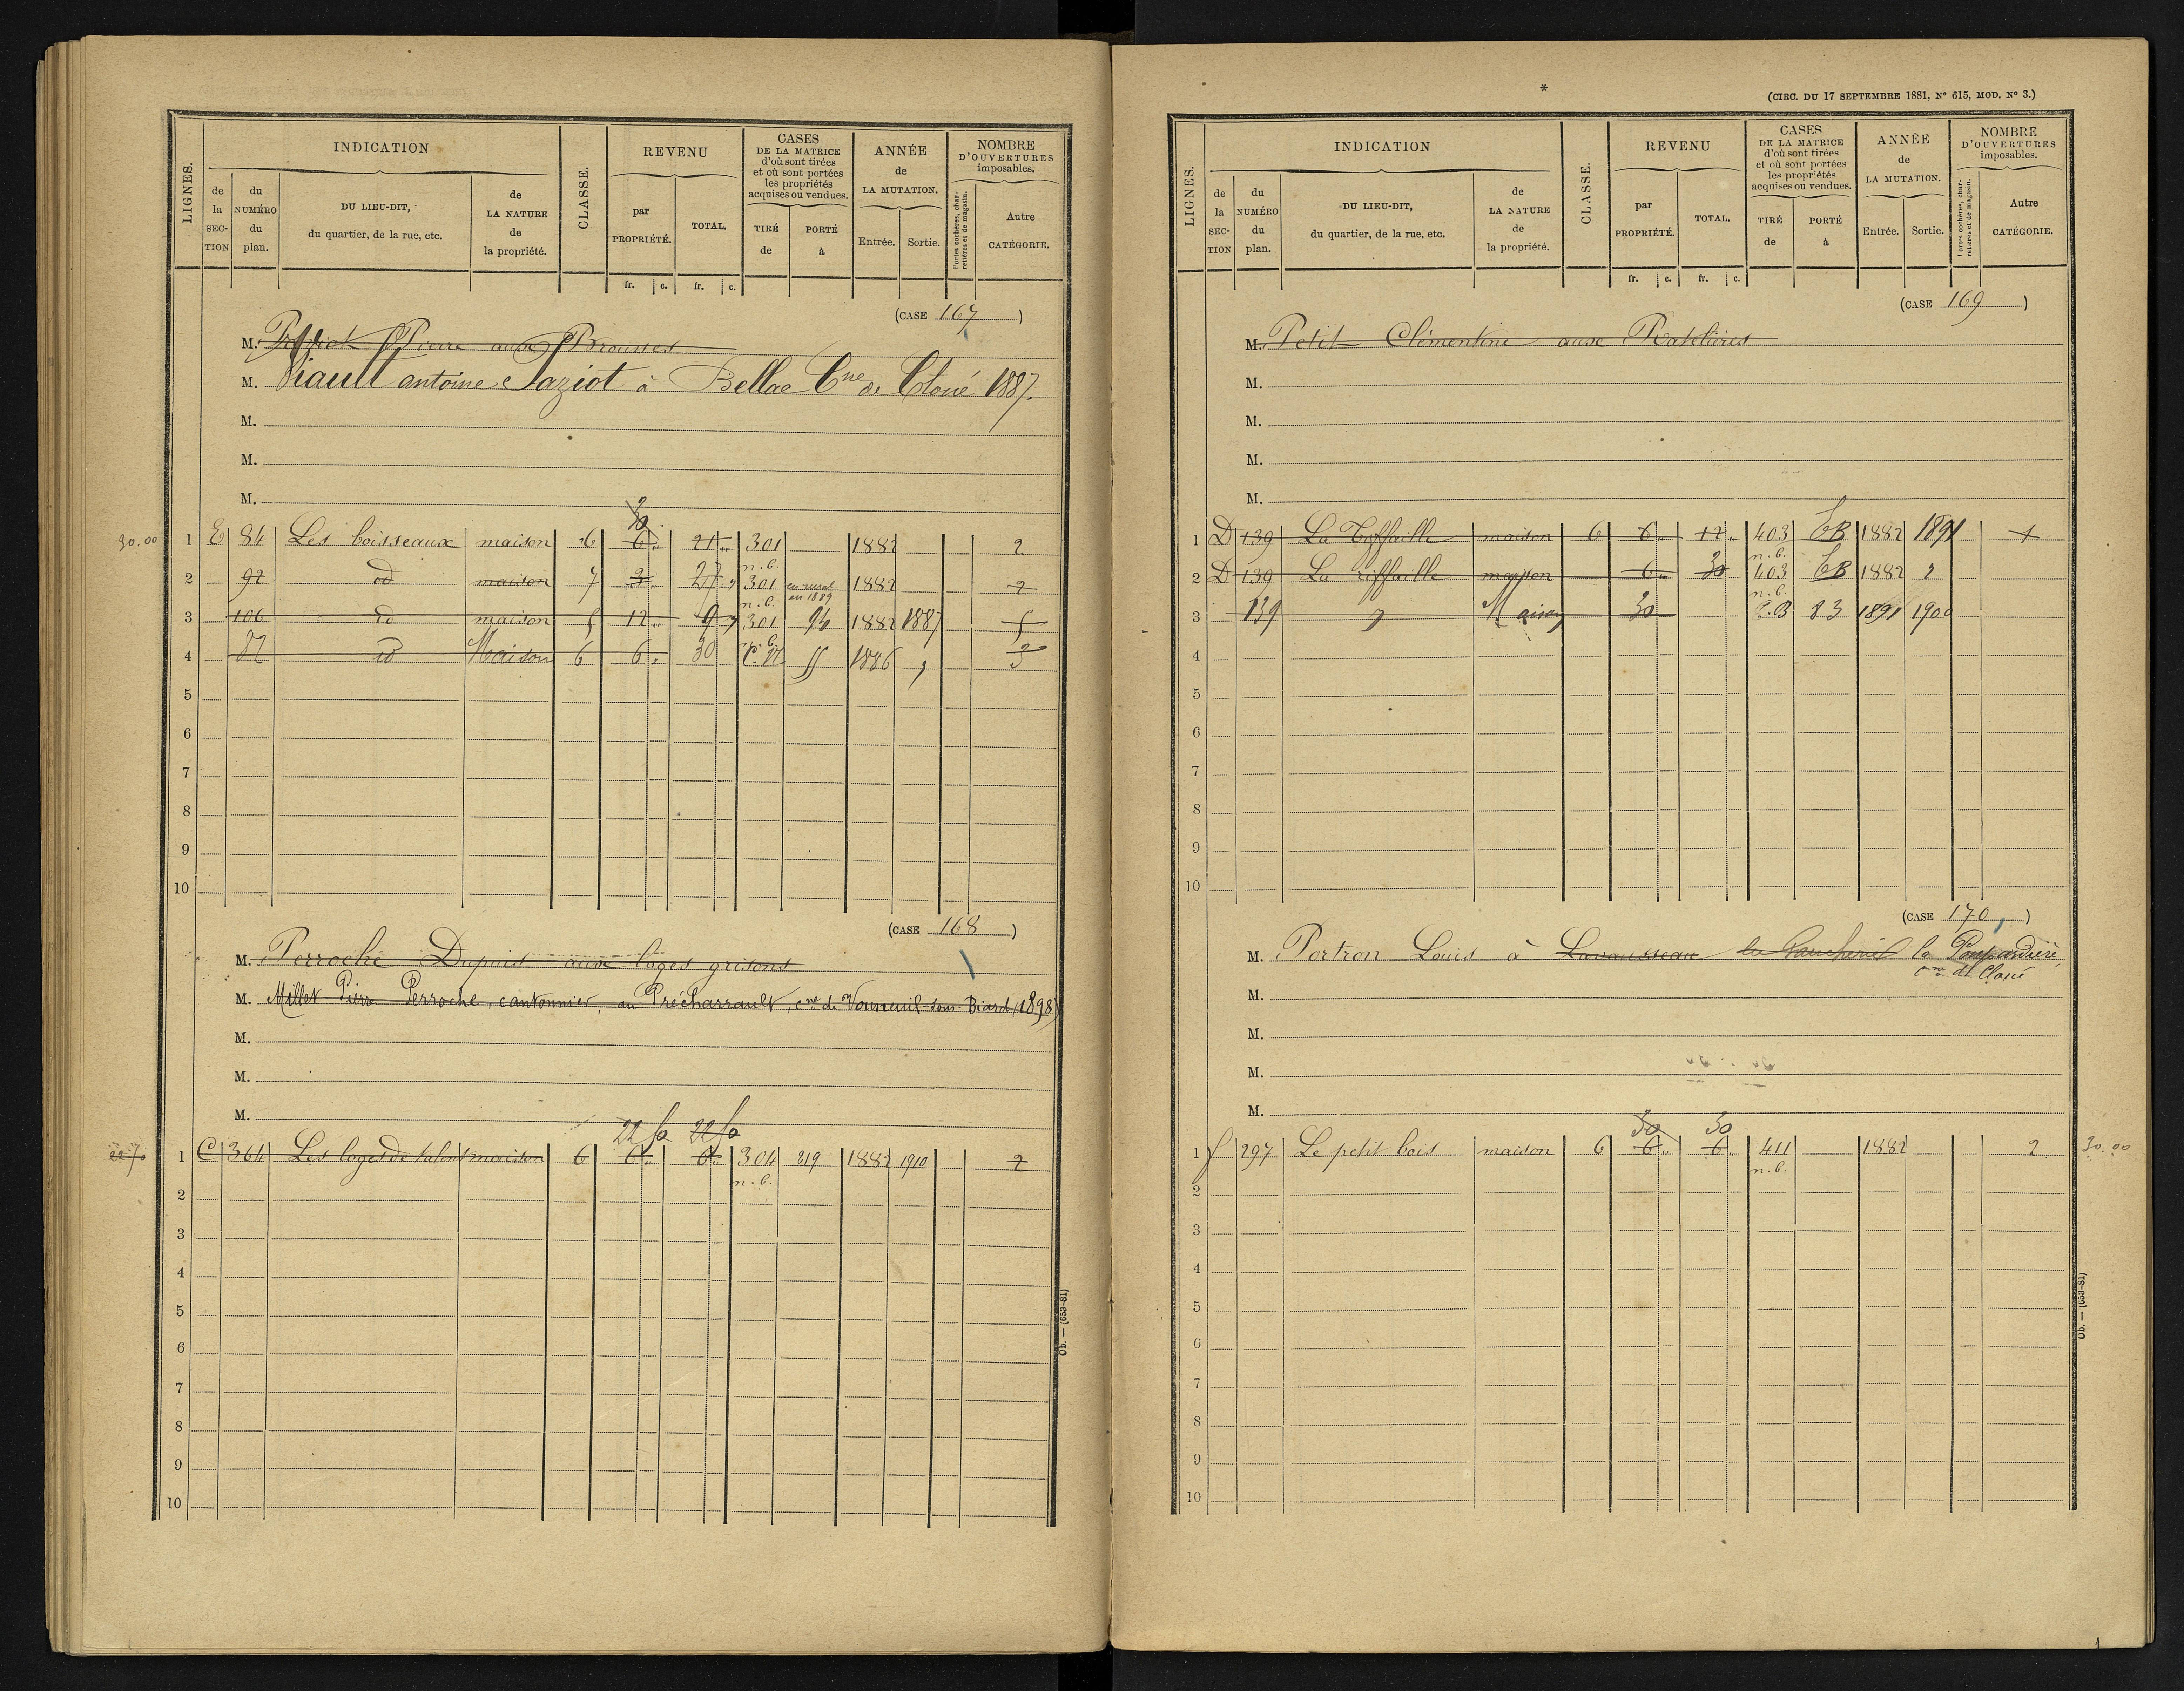 LIGNES.
INDICATION
de la SECTION
du NUMÉRO du plan.
DU LIEU-DIT, du quartier, de la rue, etc.
de LA NATURE de la propriété.
CLASSE.
REVENU
par PROPRIÉTÉ.
TOTAL.
fr. c. fr. c.
CASES DE LA MATRICE d'où sont tirées et où sont portées les propriétés acquises ou vendues.
TIRÉ de
PORTÉ à
ANNÉE de LA MUTATION.
Entrée. Sortie.
NOMBRE D'OUVERTURES imposables.
Portes cochères, charretières et de magasin.
Autre CATÉGORIE.
(CASE 167)
M. Pierre aux Brousses
M. Viault antoine Paziot à Bellac Cne de Cloué 1887.
M.
M.
M.
30
30.00 1 E 84 Les boisseaux maison 6 6 21 301 1882 2
n.b.
2 92 id maison 7 3 27 301 en rural en 1889 1882 2
n.b.
3 106 id maison 5 12 9 301 94 1882 1887 5
4 87 id Maison 6 6 30 1886
5
6
7
8
9
10
(CASE 168)
M. Perroche Dupuis aux loges grisons
M. Millet Pierre Perroche, cantonnier, au Précharrault, cne de Vouneuil-sous-Biard (1898)
M.
M.
M.
22 50 22 50
22 70 1 C 364 Les loges de maison 6 6 6 304 219 1882 1910 2
n.b.
2
3
4
5
6
7
8
9
10
Ob. — (653-81)
*
(CIRC. DU 17 SEPTEMBRE 1881, No 615, MOD. No 3.)
LIGNES.
INDICATION
de la SECTION
du NUMÉRO du plan.
DU LIEU-DIT, du quartier, de la rue, etc.
de LA NATURE de la propriété.
CLASSE.
REVENU
par PROPRIÉTÉ.
TOTAL.
fr. c. fr. c.
CASES DE LA MATRICE d'où sont tirées et où sont portées les propriétés acquises ou vendues.
TIRÉ de
PORTÉ à
ANNÉE de LA MUTATION.
Entrée. Sortie.
NOMBRE D'OUVERTURES imposables.
Portes cochères, charretières et de magasin.
Autre CATÉGORIE.
(CASE 169)
M. Petit Clémentine aux Ratelières
M.
M.
M.
M.
1 D 139 La maison 6 6 12 403 CB 1882 1891 1
n.b.
2 D 139 La riffaille maison 6 30 403 CB 1882
n.b.
3 139 Maison 30 C.B 83 1891 1900
4
5
6
7
8
9
10
(CASE 170)
M. Portron Louis à Lavausseau la
cne de Cloué
M.
M.
M.
M.
30 30
1 f 297 Le petit bois maison 6 6 6 411 1882 2 30.00
n.b.
2
3
4
5
6
7
8
9
10
Ob. — (653-81)